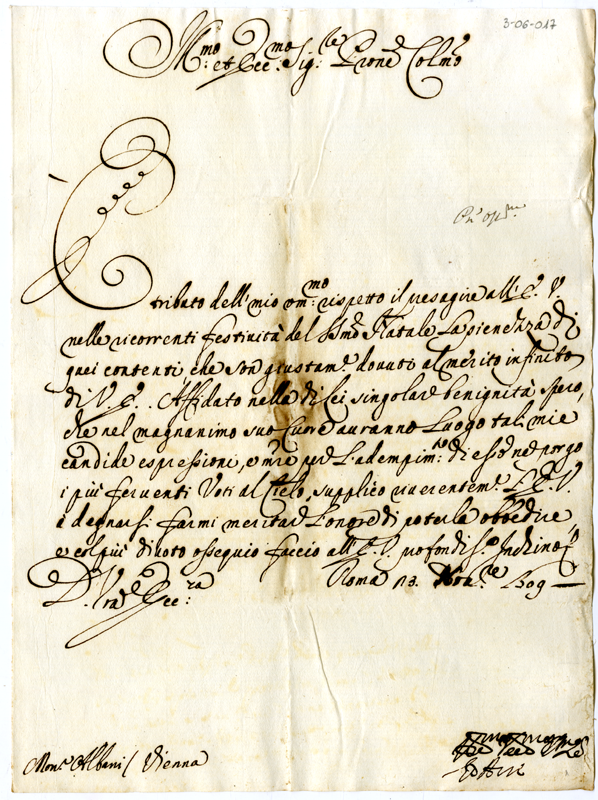 3-06-017
Ill.mo et Ecc.mo Sig.re Prone Colmo
È tributo dell'mio om:mo rispetto il presagire all'E. V.
nelle ricorrenti festività del SSmo Natale La pienezza di
quei contenti che son giustam.e dovuti al merito infinito
di V. E. Affidato nella di Lei singolare benignità spero,
che nel magnanimo suo Cuore auranno Luogo tali mie
candide espressioni, e mre per L'adempim:to di esse ne porgo
i più ferventi Voti al Cielo, supplico riverentem.e L'E. V.
à degnarsi farmi meritare L'onore di poterla obbedire,
e col più divoto ossequio faccio all'E. V. profondis.o Inchino
D. Vra Ecc:za Roma 1709
Mons.r Albani / Vienna